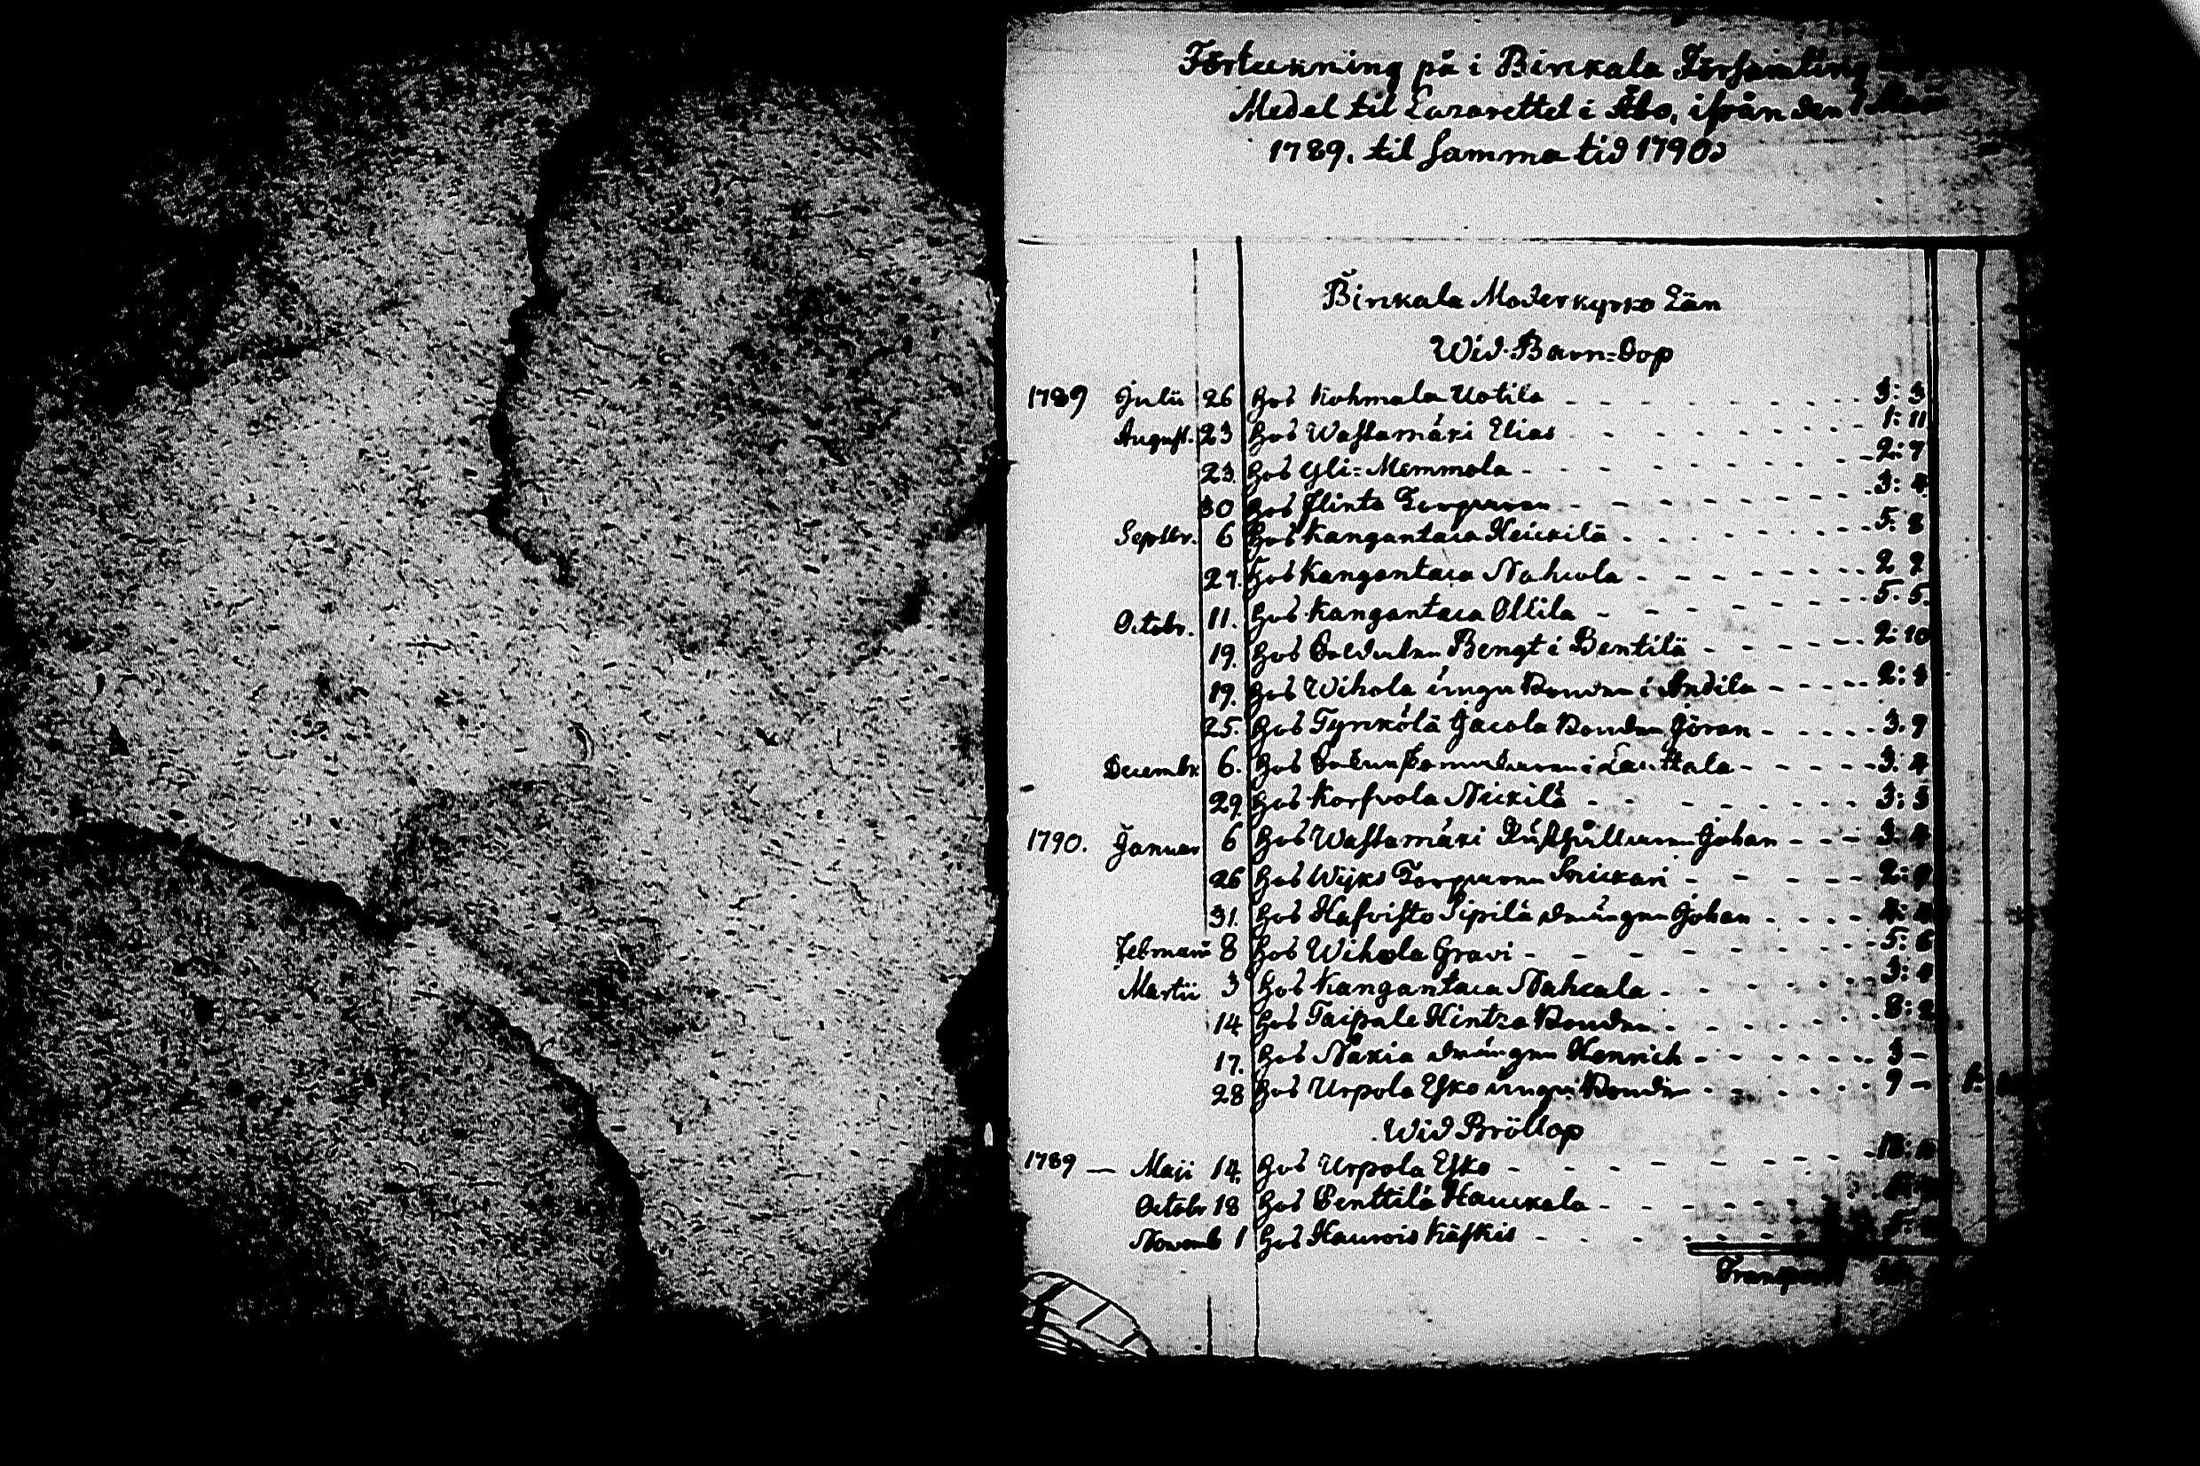 Förteckning på i Birkala Församling
Medel til Lazarettet i Åbo, ifrån den 1 Maii
1789. til samma tid 1790.
Birkala Moderkyrko Län
Wid Barn=Dop
1789 Julii 26 Hos Kohmala Uotila - - - 3: 3
August. 23 Hos Wastamäki Elias - - - 1: 11
23. Hos Yli=Memmola - - - 2: 7
30 Hos Flinta Torparen - - - 3: 4
Septbr. 6 Hos Kangantaca Heickilä - - - 5: 8
27. Hos Kangantaca Nahcola - - - 2 2
Octobr. 11. Hos Kangantaca Ollila - - - 5. 5.
19. Hos Soldaten Bengt i Bentilä - - - 2: 10
19. Hos Wihola unga Bonden i Andila - - - 2:
25. Hos Tyrkölä Jacola Bonden Göran - - - 3. 9
Decembr. 6. Hos i Lauttala - - - 3: 4
29. Hos Korfvola Nickilä - - - 3: 3
1790. Januar 6 Hos Wastamäki Johan - - - 3: 4
26 Hos Wijks Torparen Snickari - - - 2:
31. Hos Hafvisto Sipilä drängen Johan - - - 4: 4
Februarii 8 Hos Wihola Gravi - - - 5: 6
Martii 3 Hos Kangantaca Nahcala - - - 3: 4
14 Hos Taipale Hintza Bonden - - - 8: 2
17. Hos Nokia drängen Henrich - - - 3 -
28 Hos Urpola Esko unga Bonden - - - 9 -
Wid Bröllop
1789 — Maji 14. Hos Urpola Esko - - - 18:
Octobr 18 Hos Penttilä Hauckala - - -
Novemb 1 Hos Haurois Käskis - - -
Transport